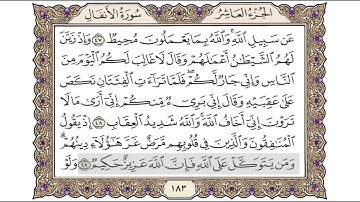 الجزء العاشر سورة الأنفال
عَن سَبِيلِ ٱللَّهِ وَٱللَّهُ بِمَا يَعْمَلُونَ مُحِيطٌ ٤٧ وَإِذْ زَيَّنَ
لَهُمُ ٱلشَّيْطَٰنُ أَعْمَٰلَهُمْ وَقَالَ لَا غَالِبَ لَكُمُ ٱلْيَوْمَ مِنَ
ٱلنَّاسِ وَإِنِّى جَارٌ لَّكُمْ فَلَمَّا تَرَآءَتِ ٱلْفِئَتَانِ نَكَصَ
عَلَىٰ عَقِبَيْهِ وَقَالَ إِنِّى بَرِىٓءٌ مِّنكُمْ إِنِّىٓ أَرَىٰ مَا لَا
تَرَوْنَ إِنِّىٓ أَخَافُ ٱللَّهَ وَٱللَّهُ شَدِيدُ ٱلْعِقَابِ ٤٨ إِذْ يَقُولُ
ٱلْمُنَٰفِقُونَ وَٱلَّذِينَ فِى قُلُوبِهِم مَّرَضٌ غَرَّ هَٰٓؤُلَآءِ دِينُهُمْ
وَمَن يَتَوَكَّلْ عَلَى ٱللَّهِ فَإِنَّ ٱللَّهَ عَزِيزٌ حَكِيمٌ ٤٩ وَلَوْ
١٨٣